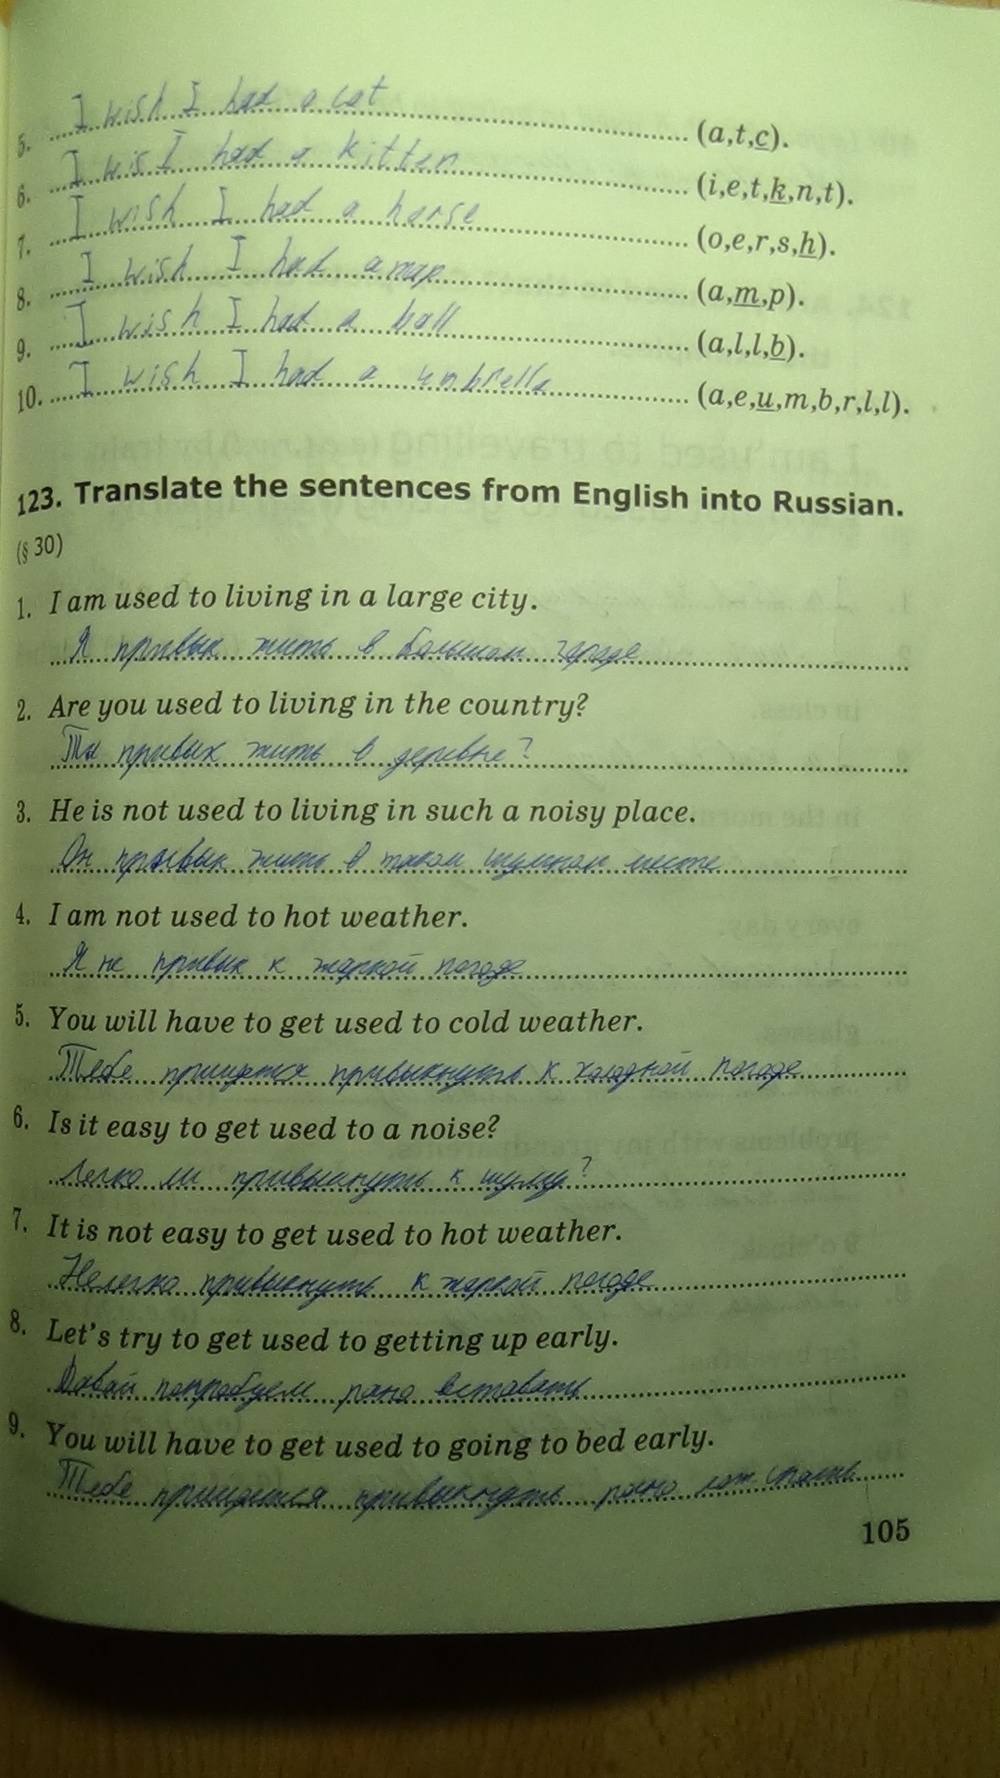 5. I wish I had a cat (a,t,c).
6. I wis I had a kitten (i,e,t,k,n,t).
7. I wish I had a horse (o,e,r,s,h).
8. I wish I had a map (a,m,p).
9. I wish I had a ball (a,l,l,b).
10. I wish I had a umbrella (a,e,u,m,b,r,l,l).
123. Translate the sentences from English into Russian.
(§ 30)
1. I am used to living in a large city.
Я привык жить в большом городе
2. Are you used to living in the country?
Ты привык жить в деревне?
3. He is not used to living in such a noisy place.
Он привык жить в таком шумном месте
4. I am not used to hot weather.
Я не привык к жаркой погоде
5. You will have to get used to cold weather.
Тебе придется привыкнуть к холодной погоде
6. Is it easy to get used to a noise?
Легко ли привыкнуть к шуму?
7. It is not easy to get used to hot weather.
Нелегко привыкнуть к жаркой погоде
8. Let's try to get used to getting up early.
Давай попробуем рано вставать
9. You will have to get used to going to bed early.
Тебе придется привыкнуть рано лож. спать
105